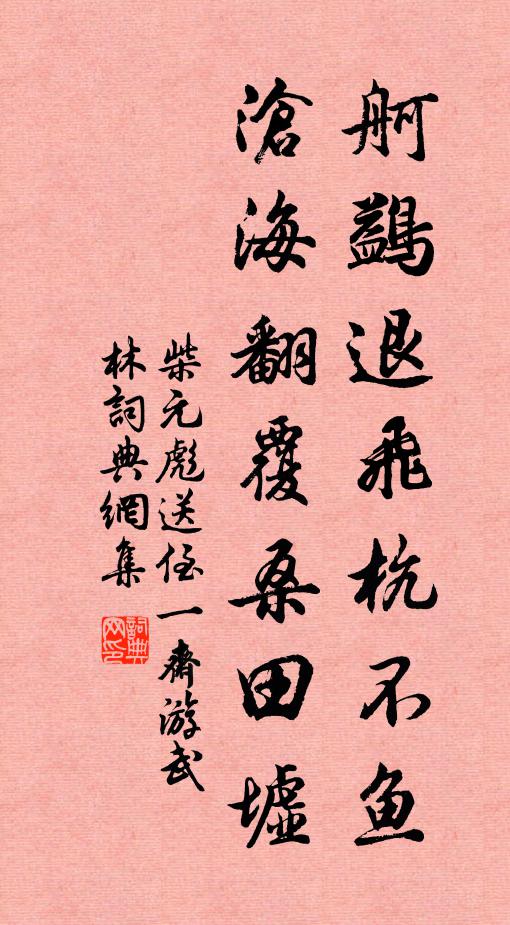 舸鷁退飛杭不魚
滄海翻覆桑田墟
柴元彪送侄一齋游武
林詞典網集
詞典网印